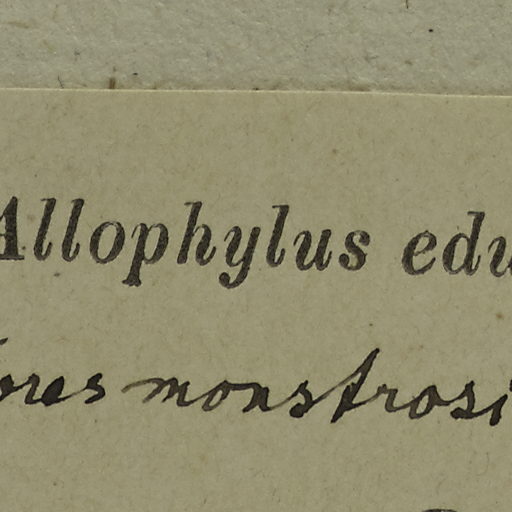 Allophylus edu
ores monstrosi